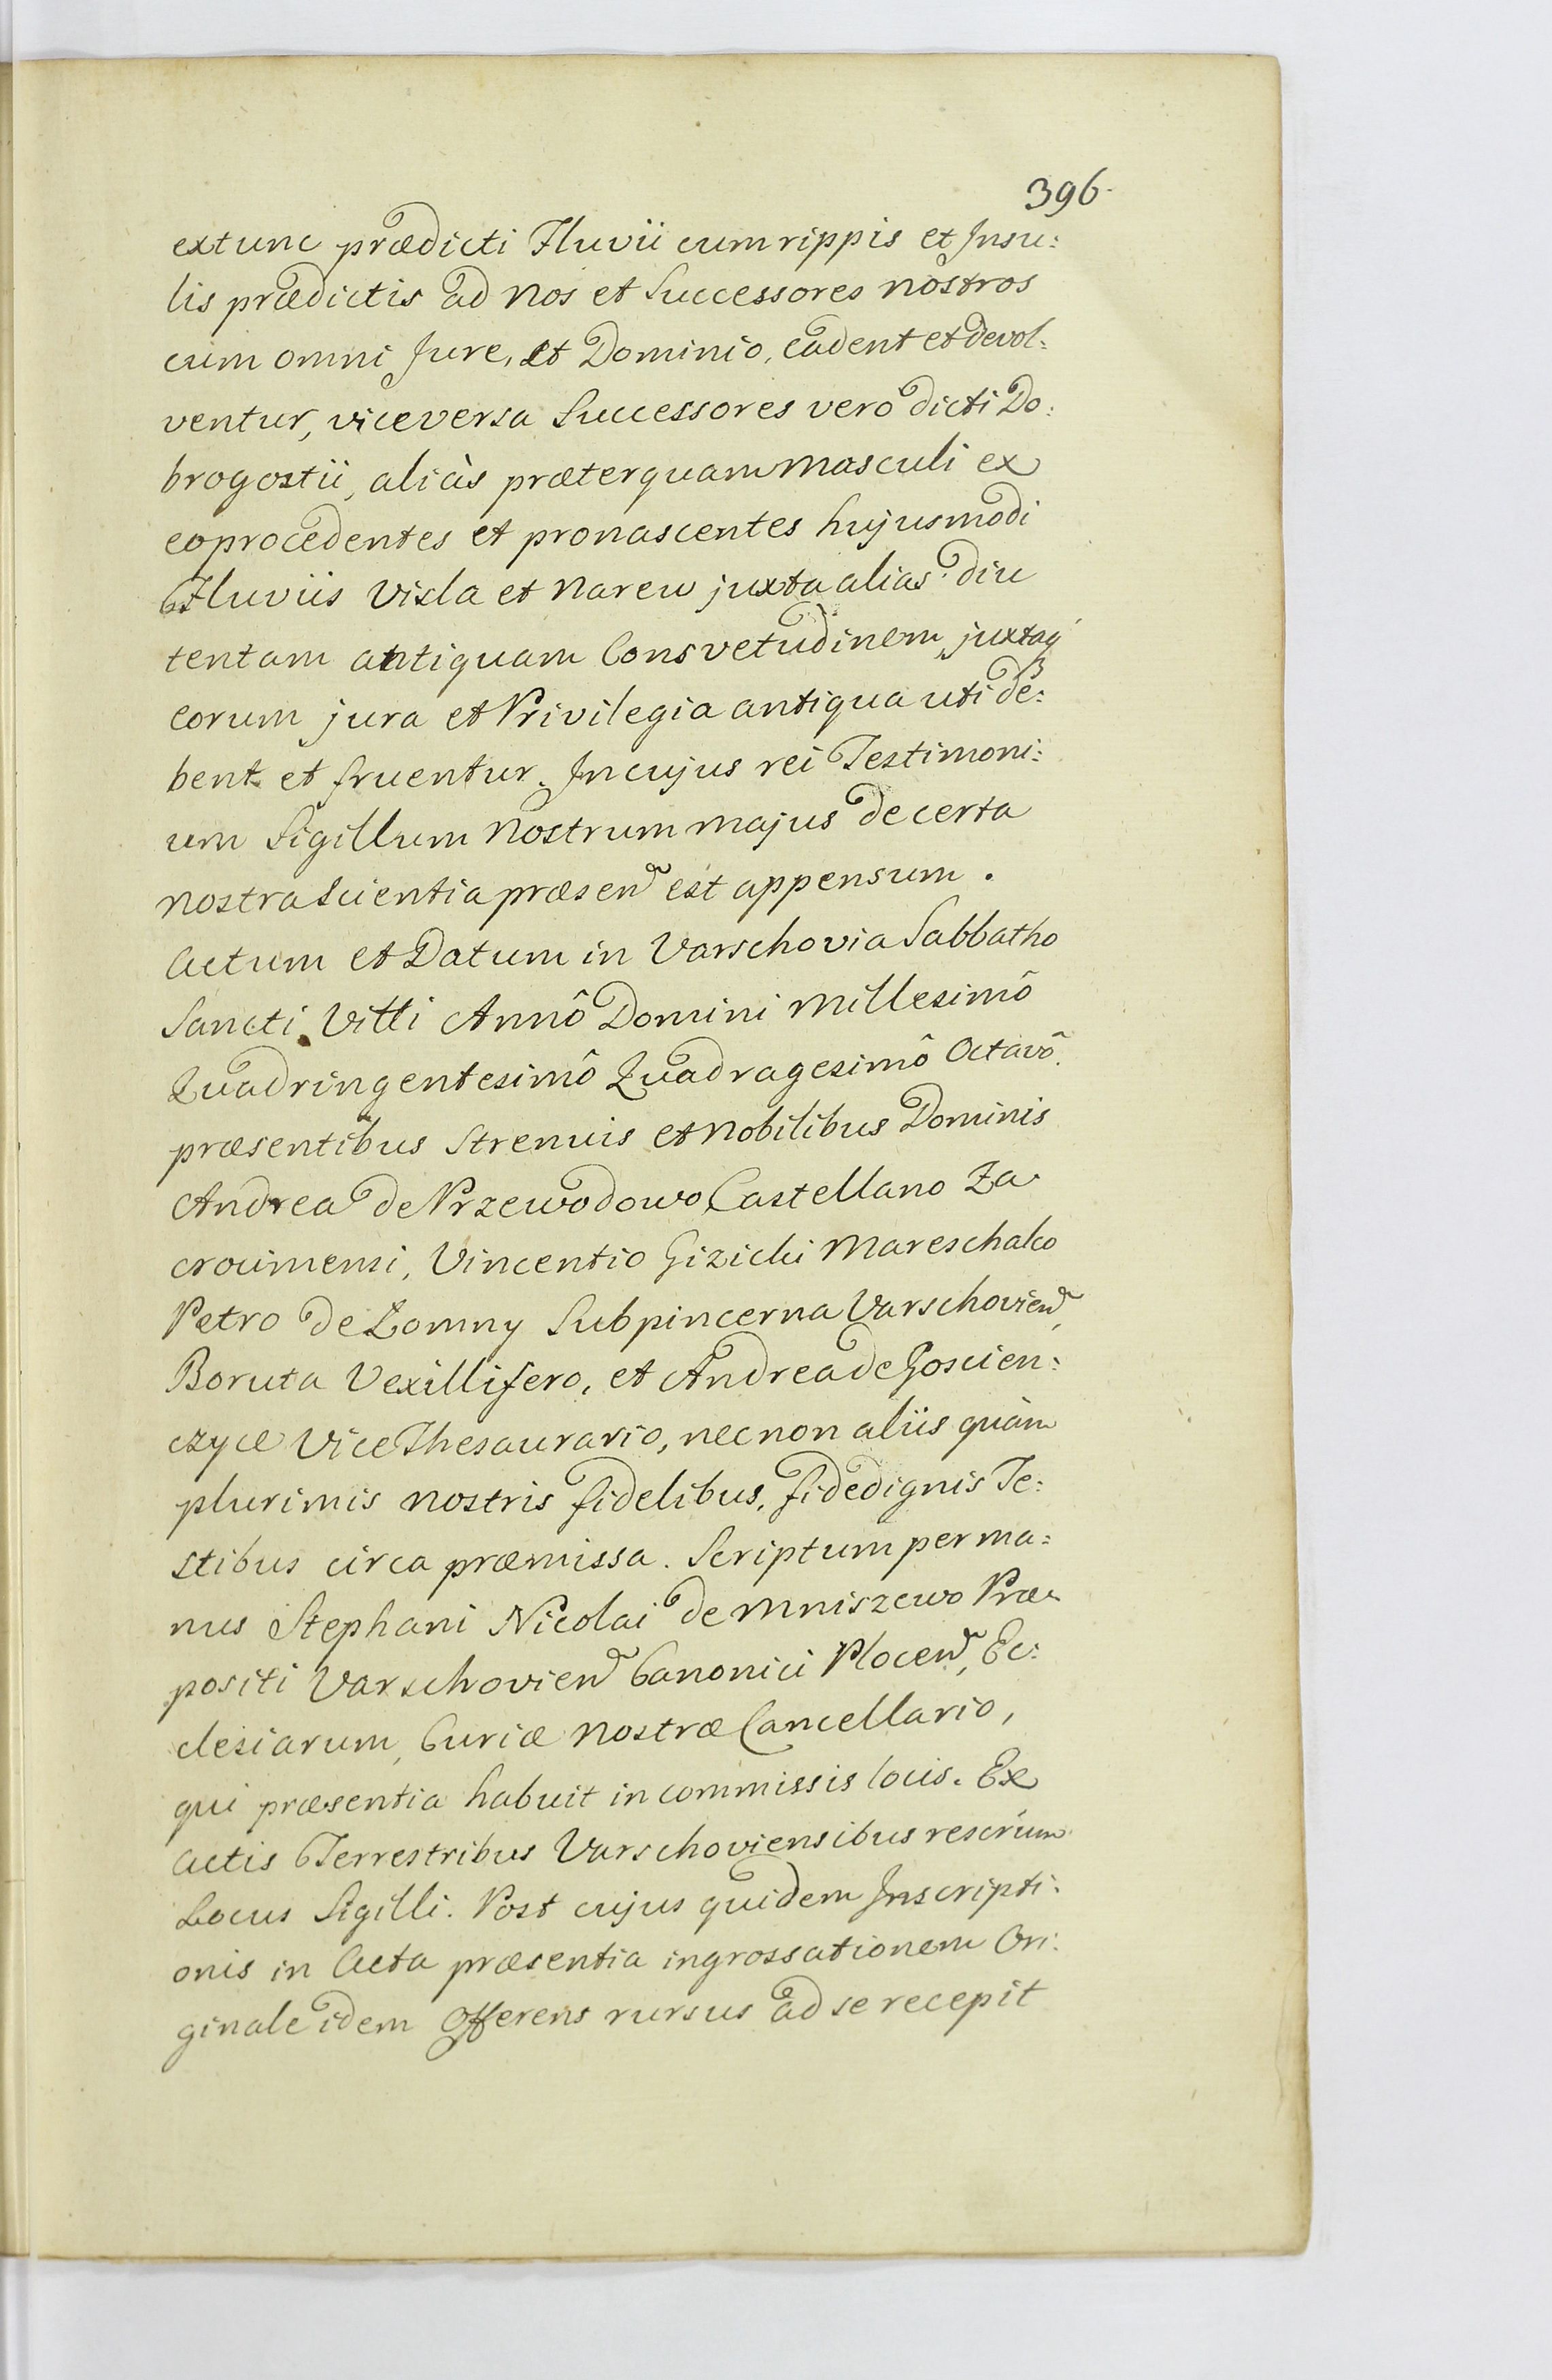 396.
extunc prædicti Fluvii cum rippis et Insu:
lis prædictis ad Nos et Successores nostros
cum omni Jure, et Dominio, cadent et devol:
ventur, viceversa Successores vero dicti Do:
brogostii, aliàs præterquam masculi ex
eo procedentes et pronascentes hujusmodi
Fluviis Visla et Narew juxta alias diu
tentam antiquam Consvetudinem, juxtaq3
eorum jura et Privilegia antiqua uti de:
bent et fruentur. In cujus rei Testimoni:
um Sigillum Nostrum majus de certa
nostra scientia præsen̄ est appensum.
Actum et Datum in Varschovia Sabbatho
Sancti Vitti Annô Domini Millesimô
Quadringentesimô Quadragesimô Octavô.
præsentibus Strenuis et Nobilibus Dominis
Andrea de Przewodowo Castellano Za
crocimensi, Vincentio Gizicki Mareschalco
Petro de Lomny Subpincerna Varschovien̄,
Boruta Vexillifero, et Andrea de Goscien:
czyce Vice Thesaurario, necnon aliis quàm
plurimis nostris fidelibus, fidedignis Te:
stibus circa præmissa. Scriptum per ma:
nus Stephani Nicolai de Mniszewo Præ
positi Varschovien̄ Canonici Plocen̄, Ec:
clesiarum, Curiæ nostræ Cancellario,
qui præsentia habuit in commissis locis. Ex
Actis Terrestribus Varschoviensibus rescrùm
Locus Sigilli. Post cujus quidem Inscripti:
onis in Acta præsentia ingrossationem Ori:
ginale idem Offerens rursus ad se recepit